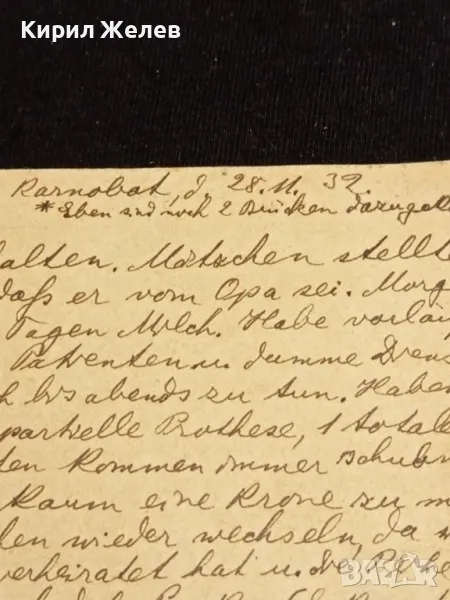 Кирил Желев
Karnobat, d, 28.11.39.
* Eben sind noch 2 Brücken dazugek
halten. Mätzchen stellte
daß er vom Opa sei. Morg
Tagen Milch. Habe vorläuf
Patienten u. dumme Diens
h bis abends zu tun. Haben
partielle Prothese, 1 totale
ten kommen immer
kaum eine Krone zu m
len wieder wechseln, da
verheiratet hat u. die
bazar